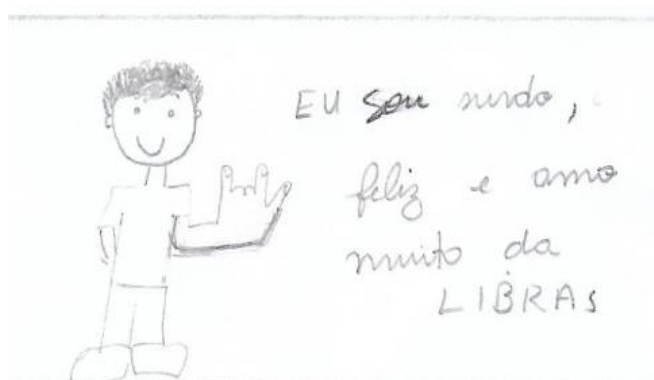 EU sou surdo,
feliz e amo
muito da
LIBRAS